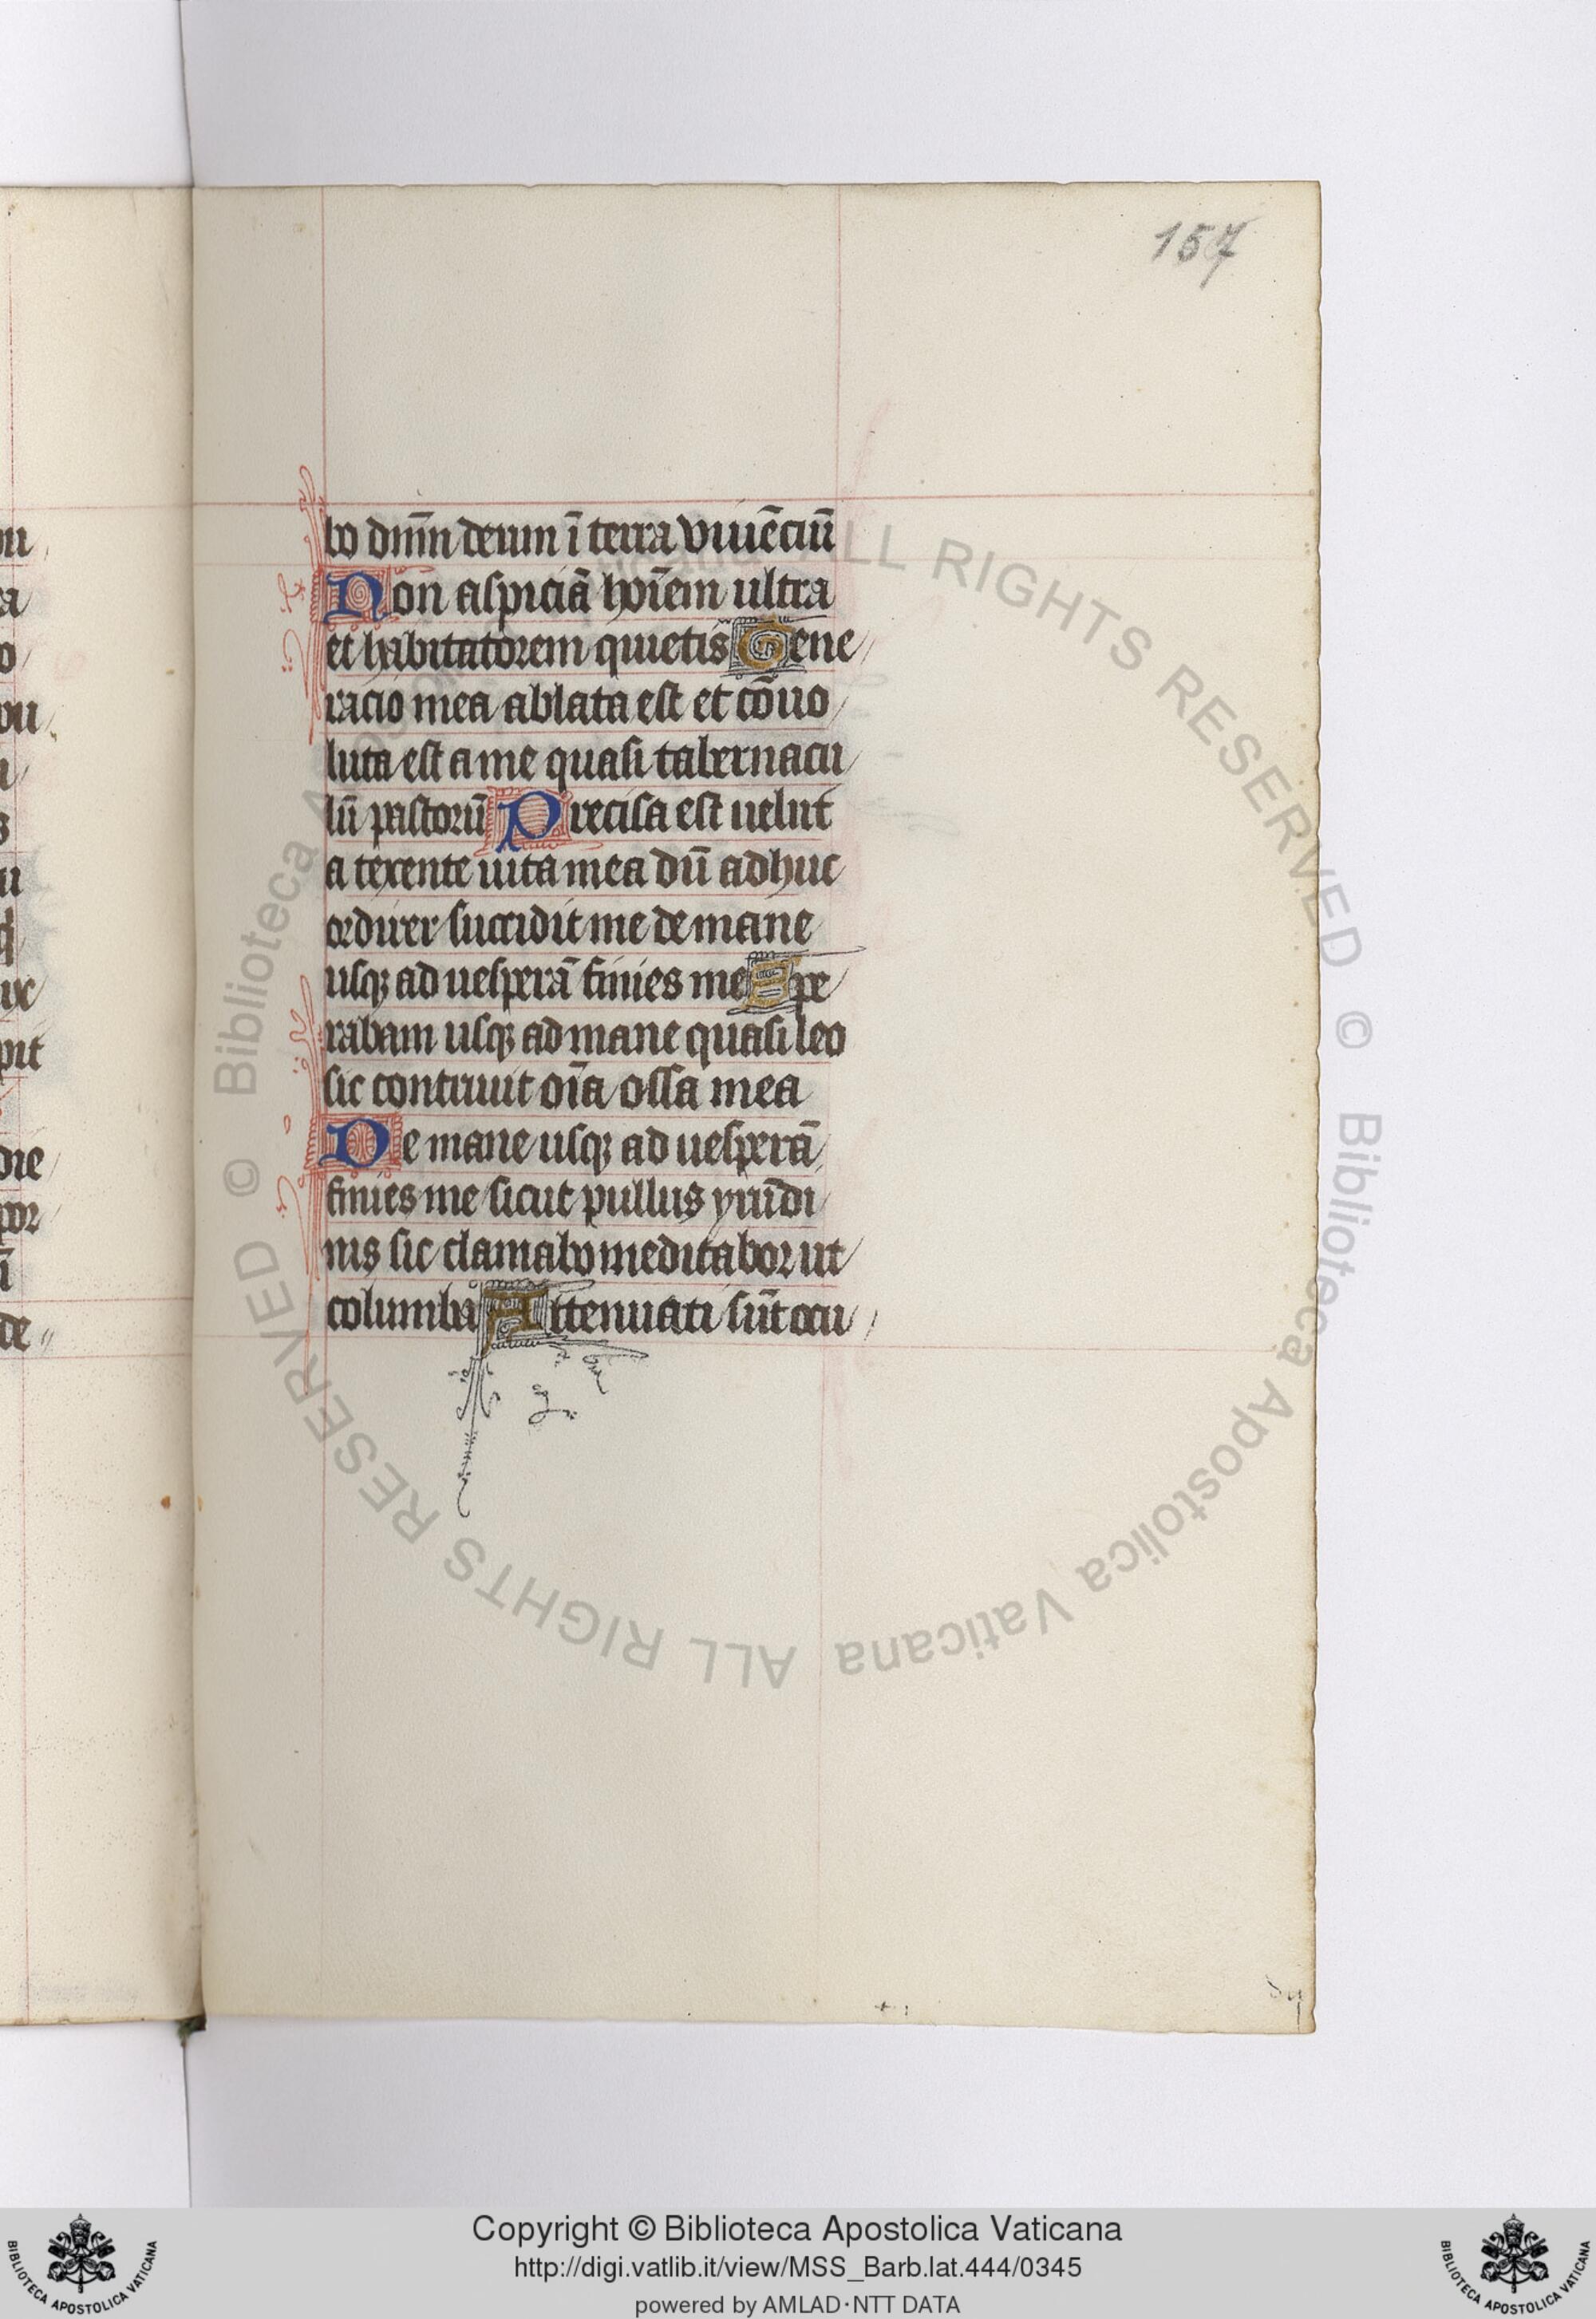 157
bo dn̄m deum ī terra viuēciū
Non aspiciā hoīem ultra
et habitatorem quietis Gene
racio mea ablata est et cōuo
luta est a me quasi tabernacu
lū pastorū Precisa est uelut
a texente uita mea dū adhuc
ordirer succidit me de mane
usqȝ ad uesperā finies me Spe
rabam usqȝ ad mane quasi leo
sic contriuit oīa ossa mea
De mane usqȝ ad uesperā
finies me sicut pullus yrūdi
nis sic clamabo meditabor ut
columba Attenuati sūt ocu
© Biblioteca Apostolica Vaticana ALL RIGHTS RESERVED © Biblioteca Apostolica Vaticana ALL RIGHTS RESERVED
Copyright © Biblioteca Apostolica Vaticana
http://digi.vatlib.it/view/MSS_Barb.lat.444/0345
powered by AMLAD·NTT DATA
BIBLIOTECA APOSTOLICA VATICANA
BIBLIOTECA APOSTOLICA VATICANA